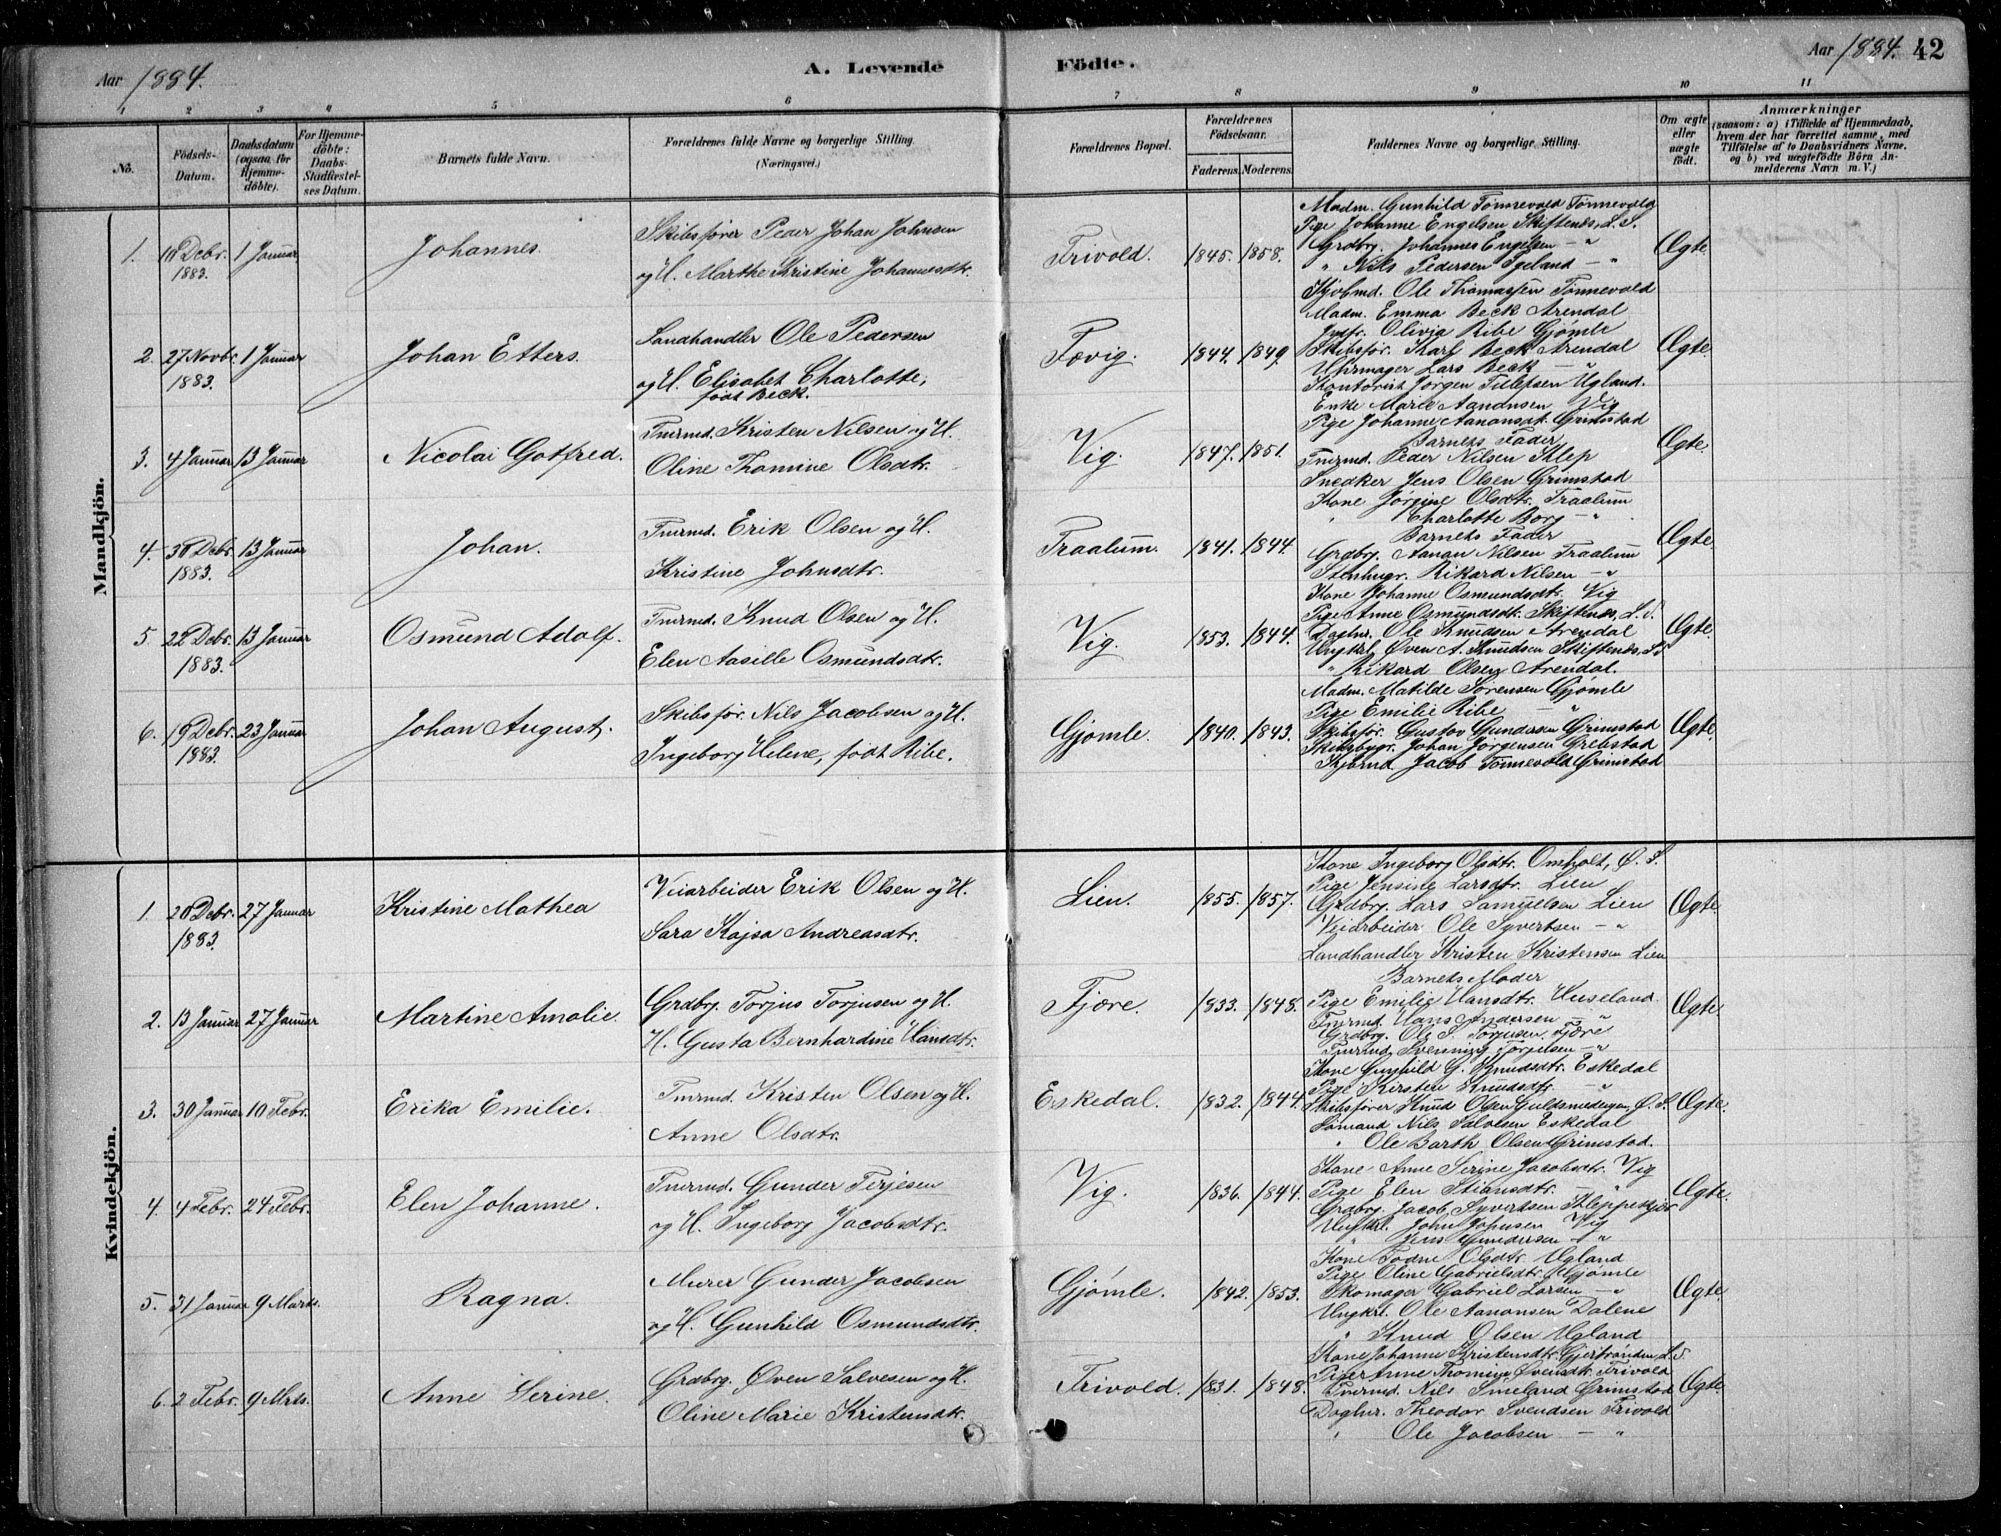 Aar 1884. A. Levende Födte. Aar 1884. 42
1 2 3 4 5 6 7 8 9 10 11
No. Födsels-Datum. Daabsdatum (ogsaa for Hjemme-döbte). For Hjemme-döbte: Daabs-Stadfæstel-ses Datum. Barnets fulde Navn. Forældrenes fulde Navne og borgerlige Stilling. (Næringsvei.) Forældrenes Bopæl. Forældrenes Födselsaar. Faderens. Moderens. Faddernes Navne og borgerlige Stilling. Om ægte eller uægte födt. Anmærkninger (saasom: a) i Tilfælde af Hjemmedaab, hvem der har forrettet samme, med Tilföielse af to Daabsvidners Navne. og b) ved uægtefödte Börn An-melderens Navn m. V.)
Mandkjön.
1. Debr. 1883. 1 Januar Johannes. Skibsfører Peder Johan Johnsen
og H. Marthe Kristine Johannesdtr. Trivold. 1845. 1858. Ægte.
Madm. Gunhild Tönnevold Tönnevold
Pige Johanne Engelsen Skiftenes, L. S.
Grdbrg. Johannes Engelsen — "
" Nils Pedersen Igeland — "
Kjøbmd. Ole Thomassen Tönnevold
2. 27 Novbr. 1883. 1 Januar Johan Etters. Landhandler Ole Pedersen
og H. Elisabet Charlotte,
født Beck. Fævig. 1844. 1849. Ægte.
Madm. Emma Beck Arendal
Jmfr. Olivia Ribe Gjömle
Skibsfør. Karl Beck Arendal
Uhrmager Lars Beck — "
Kontorist Jörgen Tellefsen Ugland.
3. 4 Januar 13 Januar Nicolai Gotfred. Tmrmd. Kristen Nilsen og H.
Oline Thomine Olsdtr. Vig. 1847. 1851. Ægte.
Enke Marie Aanonsen Vig
Pige Johanne Aanonsdt. Grimstad
Barnets Fader
Tmrmd. Peder Nilsen Klep
Snedker Jens Olsen Grimstad
4. Debr. 1883. 13 Januar Johan. Tmrmd. Erik Olsen og H.
Kristine Johnsdtr. Traalum. 1841. 1844. Ægte.
Kone Jörgine Olsdtr. Traalum
" Charlotte Borg — "
Barnets Fader
Grdbrg. Aanan Nilsen Traalum
Stenhugr. Rikard Nilsen — "
5. 22 Debr. 1883. 13 Januar Osmund Adolf. Tmrmd. Knud Olsen og H.
Elen Aasille Osmundsdtr. Vig. 1853. 1844. Ægte.
Kone Johanne Osmundsdtr. Vig
Pige Anne Osmundsdt. Skiftenes, L. S.
Daghr. Ole Knudsen Arendal
Ungkrl. Øven A. Knudsen Skiftenes, L. S.
" Rikard Olsen Arendal.
6. 19 Debr. 1883. 23 Januar Johan August. Skibsfør. Nils Jacobsen og H.
Ingeborg Helene, født Ribe. Gjömle. 1840. 1843. Ægte.
Madm. Matilde Sörensen Gjömle
Pige Emilie Ribe — "
Skibsfør. Gustov Gundersen Grimstad
Skibsbygr. Johan Jörgensen Grebstad
Kjöbmd. Jacob Tönnevold Grimstad
Kvindekjön.
1. 20 Debr. 1883. 27 Januar Kristine Mathea Veiarbeider Erik Olsen og H.
Sara Kajsa Andreasdtr. Lien. 1855. 1857. Ægte
Kone Ingeborg Olsdtr. Omholt, Ø. S.
Pige Jensine Larsdtr. Lien
Grdbrg. Lars Samuelsen Lien
Veiarbeider Ole Syvertsen — "
Landhandler Kristen Kristensen Lien
2. 13 Januar 27 Januar Martine Amalie. Grdbrg. Torjus Torjusen og H.
H. Gusta Bernhardine Hansdtr. Fjære. 1833. 1848. Ægte
Barnets Moder
Pige Emilie Hansdtr. Huseland.
Tmrmd. Hans Andersen — "
Grdbrg. Ole S. Torjusen Fjære
Tmrmd. Svenning Torjusen — "
3. 30 Januar 10 Febr. Erika Emilie. Tmrmd. Kristen Olsen og H.
Anne Olsdtr. Eskedal. 1832. 1844. Ægte.
Kone Gunhild G. Knudsdtr. Eskedal
Pige Kirsten Knudsdtr. — "
Skibsfører Knud Olsen Guldsmedengen, Ø. S.
Sömand Nils Salvesen Eskedal
" Ole Barth Olsen Grimstad.
4. 4 Febr. 24 Febr. Elen Johanne. Tmrmd. Gunder Terjesen
og H. Ingeborg Jacobsdtr. Vig. 1836. 1844. Ægte.
Kone Anne Serine Jacobsdtr. Vig
Pige Elen Stiansdtr. — "
Grdbrg. Jacob Syvertsen Kleppekjær
Ungkrl. John Johnsen Vig
" Jens Gundersen — "
5. 31 Januar 9 Marts. Ragna. Murer Gunder Jacobsen
og H. Gunhild Osmundsdtr. Gjömle. 1842. 1853. Ægte.
Kone Todne Olsdtr. Ugland
Pige Oline Gabrielsdtr. Gjömle
Skomager Gabriel Larsen — "
Ungkrl. Ole Aanonsen Dalene
" Knud Olsen Ugland
6. 2 Febr. 9 Mrts. Anne Serine. Grdbrg. Øven Salvesen og H.
Oline Marie Kristensdtr. Trivold. 1831. 1848. Ægte.
Kone Johanne Kristensdtr. L. S.
Pige Anne Thomine Øvensdtr. Trivold
Tmrmd. Nils Smeland Grimstad
Daglnr. Theodor Svendsen Trivold
" Ole Jacobsen — "